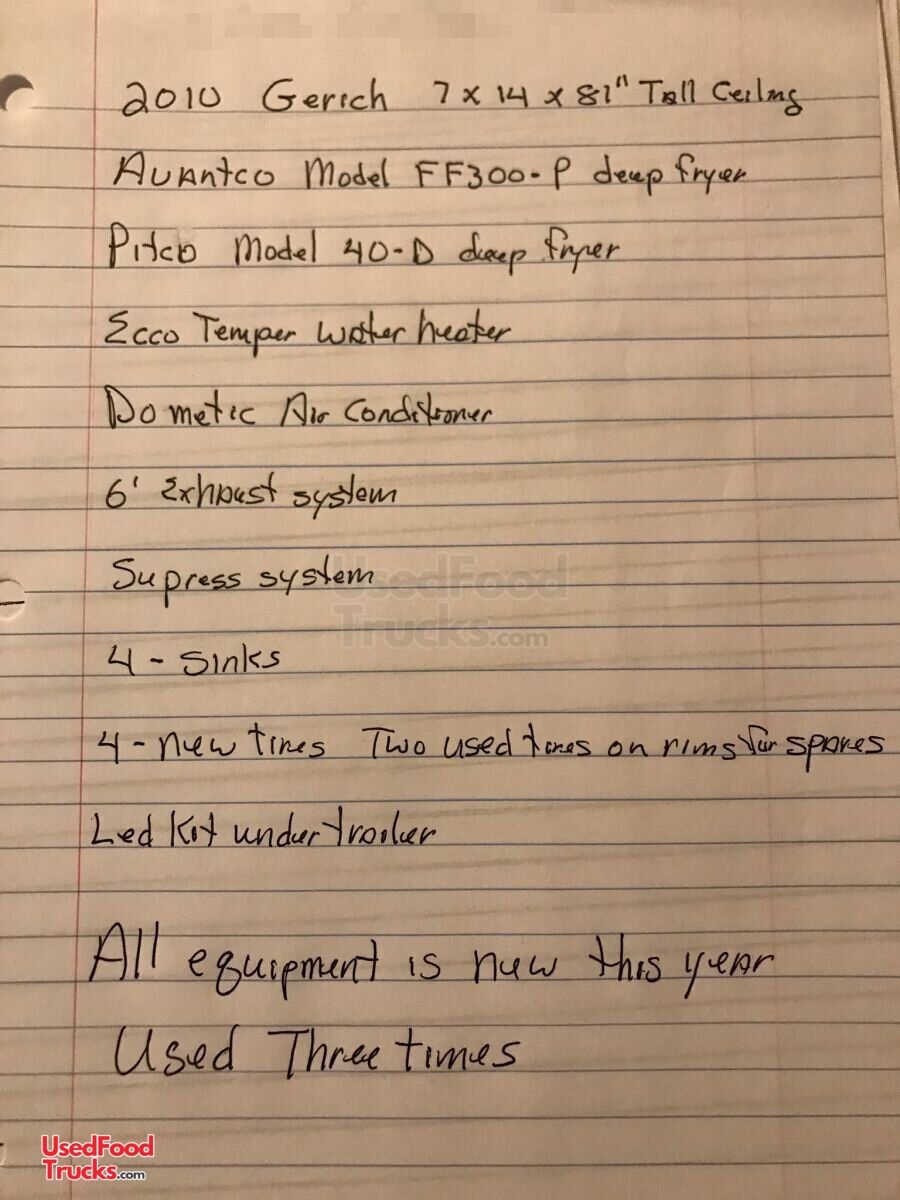 2010 Gerich 7 x 14 x 81" Tall Ceiling
Avantco Model FF300-P deep fryer
Pitco Model 40-D deep fryer
Ecco Temper water heater
Dometic Air Conditioner
6' Exhaust system
Supress system
UsedFood
Trucks.com
4 - Sinks
4 - new tires Two used tires on rims for spares
Led Kit under trailer
All equipment is new this year
Used Three times
UsedFood
Trucks.com